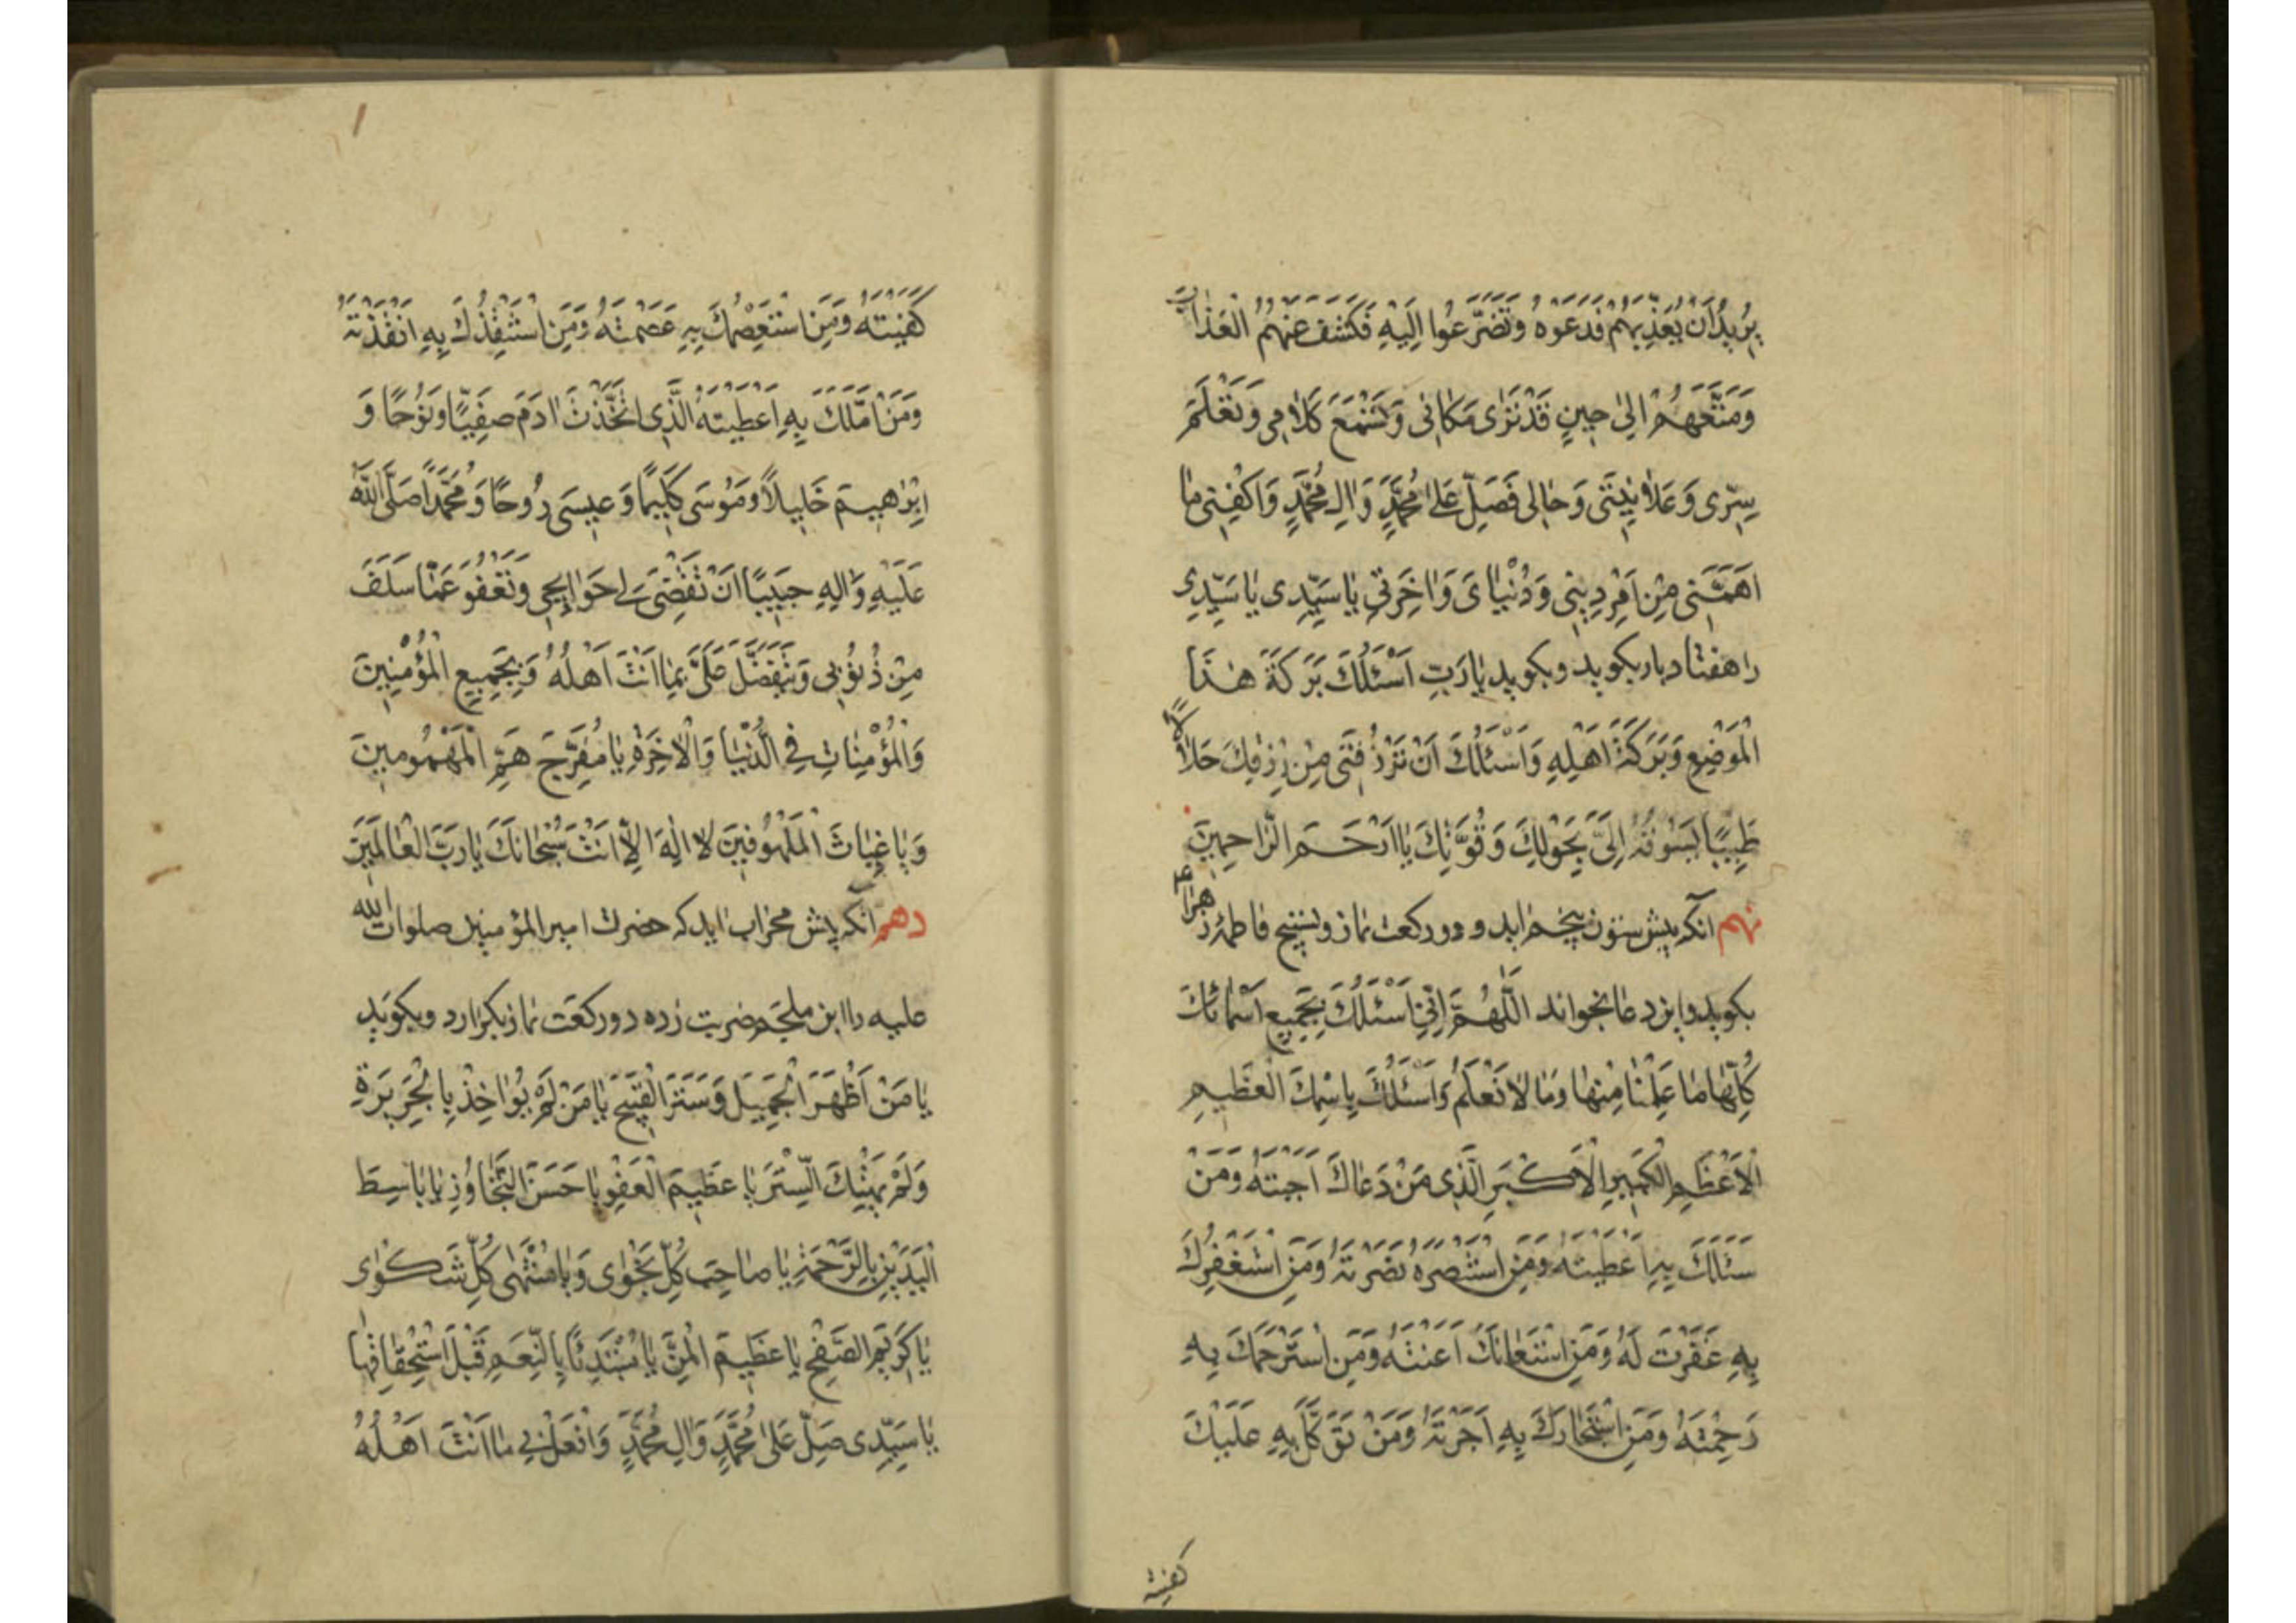 يُرِيدُ اَنْ يُعَذِّبَهُمْ فَدَعَوْهُ وَتَضَرَّعُوا اِلَيْهِ فَكَشَفَ عَنْهُمُ الْعَذَابَ
وَمَتَّعَهُمْ اِلىٰ حِينٍ قَدْ تَرٰى مَكَانِى وَتَسْمَعُ كَلَامِى وَتَعْلَمُ
سِرِّى وَعَلَانِيَتِى وَحَالِى فَصَلِّ عَلىٰ مُحَمَّدٍ وَاٰلِ مُحَمَّدٍ وَاكْفِنِى مَا
اَهَمَّنِى مِنْ اَمْرِ دِينِى وَدُنْيَاىَ وَاٰخِرَتِى يَا سَيِّدِى يَا سَيِّدِى
را هفتاد بار بكويد وبكويد يَا رَبِّ اَسْئَلُكَ بَرَكَةَ هٰذَا
الْمَوْضِعِ وَبَرَكَةَ اَهْلِهِ وَاَسْئَلُكَ اَنْ تَرْزُقَنِى مِنْ رِزْقِكَ حَلَالًا
طَيِّبًا تَسُوقُهُ اِلَىَّ بِحَوْلِكَ وَقُوَّتِكَ يَا اَرْحَمَ الرَّاحِمِينَ
نهم آنكه پيش ستون پنجم ايد و دو ركعت نماز وتسبيح فاطمهٔ زهرا ع
بكويد واين دعا بخواند اَللّٰهُمَّ اِنِّى اَسْئَلُكَ بِجَمِيعِ اَسْمَائِكَ
كُلِّهَا مَا عَلِمْنَا مِنْهَا وَمَا لَا نَعْلَمُ وَاَسْئَلُكَ بِاسْمِكَ الْعَظِيمِ
الْاَعْظَمِ الْكَبِيرِ الْاَكْبَرِ الَّذِى مَنْ دَعَاكَ اَجَبْتَهُ وَمَنْ
سَئَلَكَ بِهِ اَعْطَيْتَهُ وَمَنِ اسْتَنْصَرَهُ نَصَرْتَهُ وَمَنِ اسْتَغْفَرَكَ
بِهِ غَفَرْتَ لَهُ وَمَنِ اسْتَعَانَكَ اَعَنْتَهُ وَمَنِ اسْتَرْحَمَكَ بِهِ
رَحِمْتَهُ وَمَنِ اسْتَجَارَكَ بِهِ اَجَرْتَهُ وَمَنْ تَوَكَّلَ بِهِ عَلَيْكَ
كفيته
كَفَيْتَهُ وَمَنِ اسْتَعْصَمَكَ بِهِ عَصَمْتَهُ وَمَنِ اسْتَنْقَذَكَ بِهِ اَنْقَذْتَهُ
وَمَنْ اَمَّلَكَ بِهِ اَعْطَيْتَهُ الَّذِى اتَّخَذْتَ اٰدَمَ صَفِيًّا وَنُوحًا وَ
اِبْرٰاهِيمَ خَلِيلًا وَمُوسَى كَلِيمًا وَعِيسَى رُوحًا وَمُحَمَّدًا صَلَّى اللّٰهُ
عَلَيْهِ وَاٰلِهِ حَبِيبًا اَنْ تَقْضِىَ لِى حَوَائِجِى وَتَعْفُوَ عَمَّا سَلَفَ
مِنْ ذُنُوبِى وَتَتَفَضَّلَ عَلَىَّ بِمَا اَنْتَ اَهْلُهُ وَبِجَمِيعِ الْمُؤْمِنِينَ
وَالْمُؤْمِنَاتِ فِى الدُّنْيَا وَالْاٰخِرَةِ يَا مُفَرِّجَ هَمِّ الْمَهْمُومِينَ
وَيَا غِيَاثَ الْمَلْهُوفِينَ لَا اِلٰهَ اِلَّا اَنْتَ سُبْحَانَكَ يَا رَبَّ الْعَالَمِينَ
دهم آنكه پيش محراب ايد كه حضرت امير المؤمنين صلوات الله
عليه را ابن ملجم ضربت زده دو ركعت نماز بكزارد وبكويد
يَا مَنْ اَظْهَرَ الْجَمِيلَ وَسَتَرَ الْقَبِيحَ يَا مَنْ لَمْ يُوَاخِذْ بِالْجَرِيرَةِ
وَلَمْ يَهْتِكَ السِّتْرَ يَا عَظِيمَ الْعَفْوِ يَا حَسَنَ التَّجَاوُزِ يَا بَاسِطَ
الْيَدَيْنِ بِالرَّحْمَةِ يَا صَاحِبَ كُلِّ نَجْوٰى وَيَا مُنْتَهٰى كُلِّ شَكْوٰى
يَا كَرِيمَ الصَّفْحِ يَا عَظِيمَ الْمَنِّ يَا مُبْتَدِئًا بِالنِّعَمِ قَبْلَ اسْتِحْقَاقِهَا
يَا سَيِّدِى صَلِّ عَلىٰ مُحَمَّدٍ وَاٰلِ مُحَمَّدٍ وَافْعَلْ بِى مَا اَنْتَ اَهْلُهُ